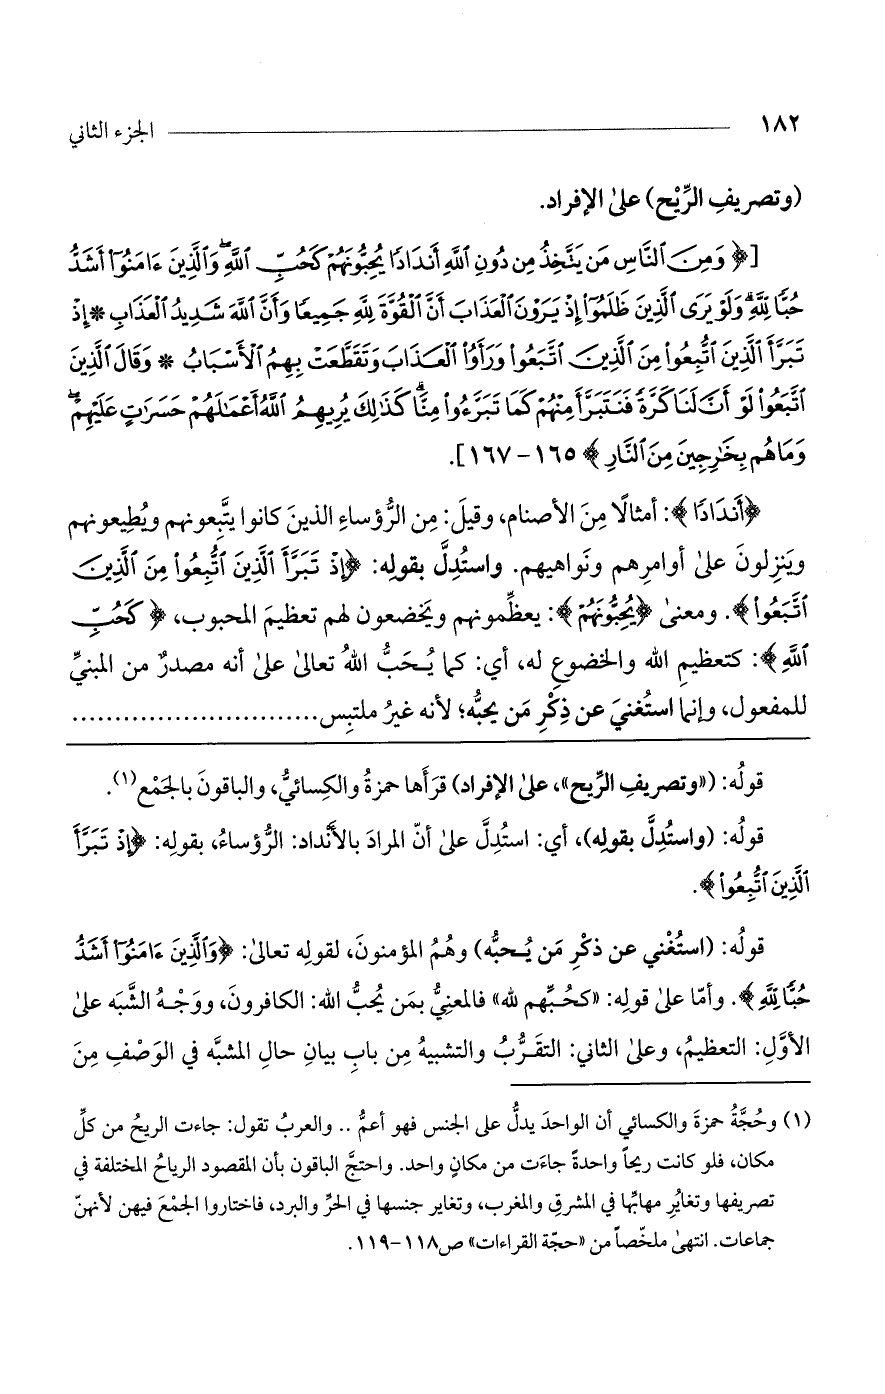 ١٨٢ الجزء الثاني
(وتصريفِ الرِّيْح) علىٰ الإفراد.
[﴿وَمِنَ ٱلنَّاسِ مَن يَتَّخِذُ مِن دُونِ ٱللَّهِ أَندَادًا يُحِبُّونَهُمْ كَحُبِّ ٱللَّهِ ۖ وَٱلَّذِينَ ءَامَنُوٓا۟ أَشَدُّ
حُبًّا لِّلَّهِ ۗ وَلَوْ يَرَى ٱلَّذِينَ ظَلَمُوٓا۟ إِذْ يَرَوْنَ ٱلْعَذَابَ أَنَّ ٱلْقُوَّةَ لِلَّهِ جَمِيعًا وَأَنَّ ٱللَّهَ شَدِيدُ ٱلْعَذَابِ * إِذْ
تَبَرَّأَ ٱلَّذِينَ ٱتُّبِعُوا۟ مِنَ ٱلَّذِينَ ٱتَّبَعُوا۟ وَرَأَوُا۟ ٱلْعَذَابَ وَتَقَطَّعَتْ بِهِمُ ٱلْأَسْبَابُ * وَقَالَ ٱلَّذِينَ
ٱتَّبَعُوا۟ لَوْ أَنَّ لَنَا كَرَّةً فَنَتَبَرَّأَ مِنْهُمْ كَمَا تَبَرَّءُوا۟ مِنَّا ۗ كَذَٰلِكَ يُرِيهِمُ ٱللَّهُ أَعْمَٰلَهُمْ حَسَرَٰتٍ عَلَيْهِمْ ۖ
وَمَا هُم بِخَٰرِجِينَ مِنَ ٱلنَّارِ﴾ ١٦٥ - ١٦٧].
﴿أَندَادًا﴾: أمثالًا مِنَ الأصنام، وقيلَ: مِن الرُّؤساءِ الذينَ كانوا يتَّبِعونهم ويُطِيعونهم
ويَنزِلونَ علىٰ أوامرِهم ونَواهيهم. واستُدِلَّ بقولِه: ﴿إِذْ تَبَرَّأَ ٱلَّذِينَ ٱتُّبِعُوا۟ مِنَ ٱلَّذِينَ
ٱتَّبَعُوا۟﴾. ومعنىٰ ﴿يُحِبُّونَهُمْ﴾: يعظِّمونهم ويَخضعون لهم تعظيمَ المحبوب، ﴿كَحُبِّ
ٱللَّهِ﴾: كتعظيمِ الله والخضوعِ له، أي: كما يُحَبُّ اللهُ تعالىٰ علىٰ أنه مصدرٌ من المبنيِّ
للمفعول، وإنما استُغنيَ عن ذِكْرِ مَن يحبُّه؛ لأنه غيرُ ملتبِس.............................
قولُه: («وتصريفِ الرِّيح»، علىٰ الإفراد) قرَأَها حمزةُ والكِسائيُّ، والباقونَ بالجَمْع(١).
قولُه: (واستُدِلَّ بقولِه)، أي: استُدِلَّ علىٰ أنّ المرادَ بالأَنداد: الرُّؤساءُ، بقولِه: ﴿إِذْ تَبَرَّأَ
ٱلَّذِينَ ٱتُّبِعُوا۟﴾.
قولُه: (استُغْني عن ذكْرِ مَن يُحبُّه) وهُمُ المؤمنونَ، لقولِه تعالىٰ: ﴿وَٱلَّذِينَ ءَامَنُوٓا۟ أَشَدُّ
حُبًّا لِّلَّهِ﴾. وأمّا علىٰ قولِه: «كحُبِّهم لله» فالمعنيُّ بمَن يُحبُّ الله: الكافرونَ، ووَجْهُ الشَّبَه علىٰ
الأوَّلِ: التعظيمُ، وعلىٰ الثاني: التقَرُّبُ والتشبيهُ مِن بابِ بيانِ حالِ المشبَّه في الوَصْفِ مِنَ
(١) وحُجَّةُ حمزةَ والكسائي أن الواحدَ يدلُّ على الجنس فهو أعمُّ .. والعربُ تقول: جاءت الريحُ من كلِّ
مكان، فلو كانت ريحاً واحدةً جاءَت من مكانٍ واحد. واحتجَّ الباقون بأن المقصود الرياحُ المختلفة في
تصريفها وتغايُرِ مهابِّها في المشرقِ والمغرب، وتغاير جنسها في الحرِّ والبرد، فاختاروا الجمْعَ فيهن لأنهنّ
جماعات. انتهىٰ ملخّصاً من «حجّة القراءات» ص١١٨-١١٩.